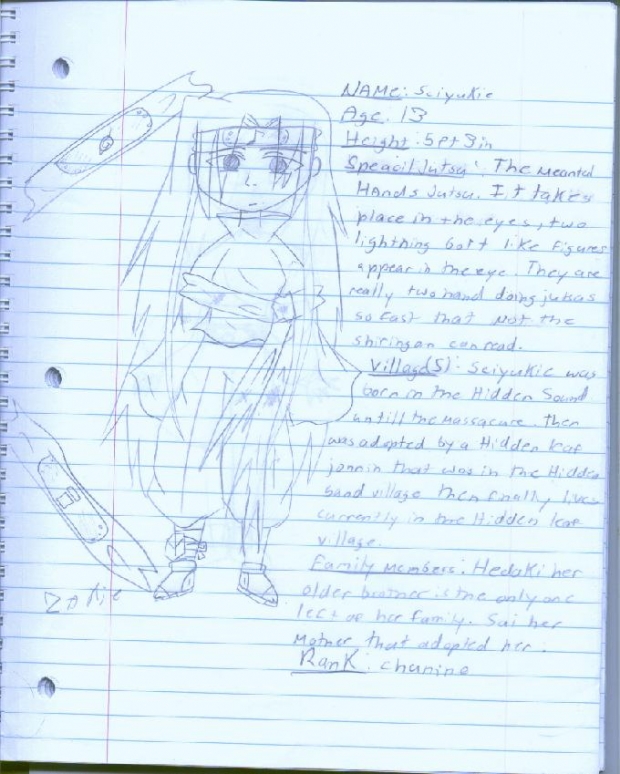 NAME: Sciyukie
Age. 13
Height: 5ft 3in
Speacil Jutsu: The Meantal
Hands Jutsu. It takes
place in the eyes, two
lightning bolt like figures
appear in the eye. They are
really two hand doing jukas
so fast that not the
shiringan can read.
Village(s): Sciyukie was
born in the Hidden Sound
untill the massacure. then
was adopted by a Hidden leaf
jonnin that was in the Hidden
sand village then finally lives
currently in the Hidden leaf
village.
Family members: Hedaki her
older brother is the only one
left of her family. Sai her
Mother that adopted her.
Rank: chunine